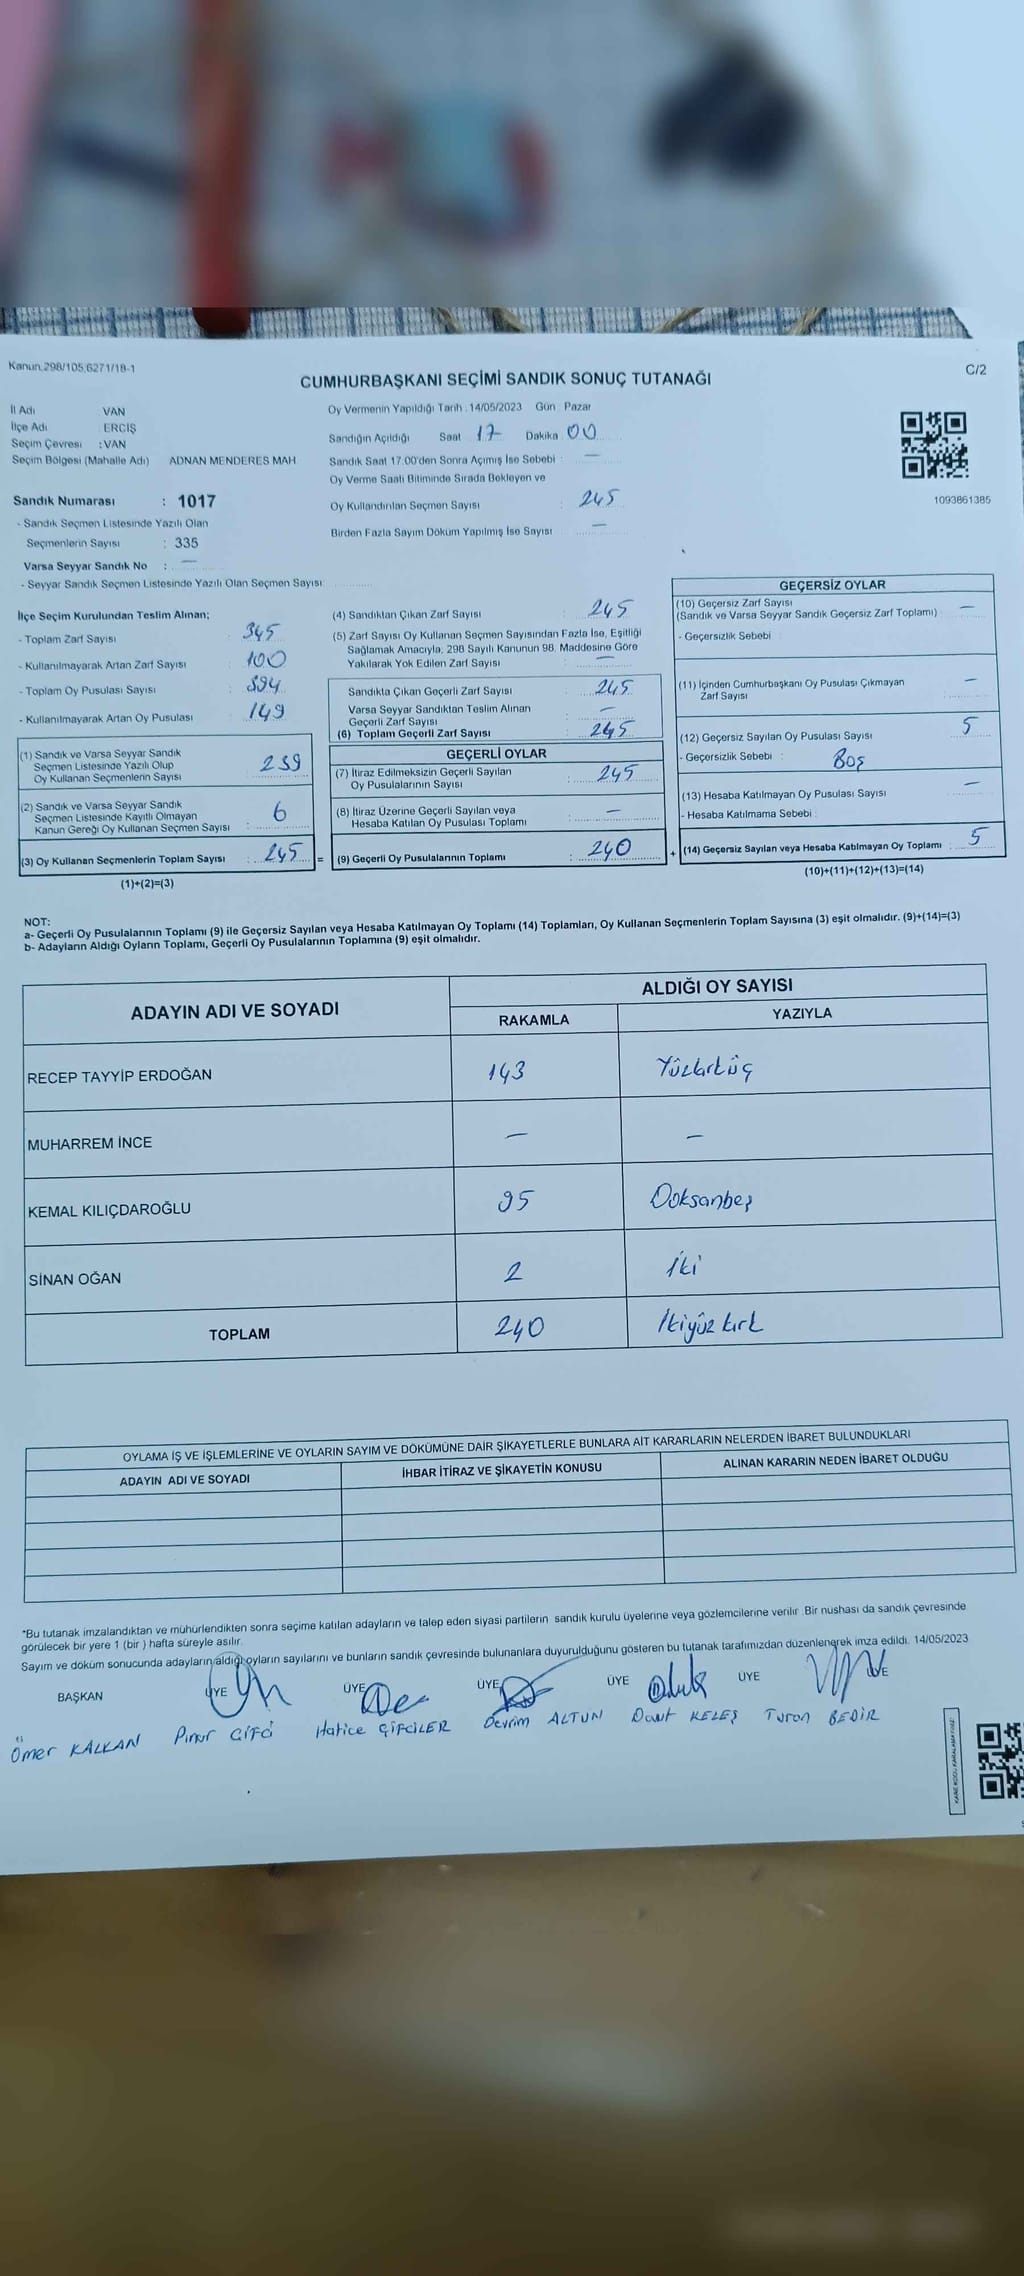 Kanun.298/105,6271/18-1
C/2
CUMHURBAŞKANI SEÇİMİ SANDIK SONUÇ TUTANAĞI
İl Adı VAN
İlçe Adı : ERCİŞ
Seçim Çevresi : VAN
Seçim Bölgesi (Mahalle Adı) ADNAN MENDERES MAH
Sandık Numarası : 1017
- Sandık Seçmen Listesinde Yazılı Olan
Seçmenlerin Sayısı : 335
Varsa Seyyar Sandık No : —
- Seyyar Sandık Seçmen Listesinde Yazılı Olan Seçmen Sayısı
Oy Vermenin Yapıldığı Tarih : 14/05/2023 Gün : Pazar
Sandığın Açıldığı Saat 17 Dakika 00
Sandık Saat 17:00'den Sonra Açımış İse Sebebi : —
Oy Verme Saati Bitiminde Sırada Bekleyen ve
Oy Kullandırılan Seçmen Sayısı : 245
Birden Fazla Sayım Döküm Yapılmış İse Sayısı —
1093861385
İlçe Seçim Kurulundan Teslim Alınan;
- Toplam Zarf Sayısı : 345
- Kullanılmayarak Artan Zarf Sayısı : 100
- Toplam Oy Pusulası Sayısı : 394
- Kullanılmayarak Artan Oy Pusulası : 149
(1) Sandık ve Varsa Seyyar Sandık
Seçmen Listesinde Yazılı Olup
Oy Kullanan Seçmenlerin Sayısı : 239
(2) Sandık ve Varsa Seyyar Sandık
Seçmen Listesinde Kayıtlı Olmayan
Kanun Gereği Oy Kullanan Seçmen Sayısı : 6
(3) Oy Kullanan Seçmenlerin Toplam Sayısı : 245 =
(1)+(2)=(3)
(4) Sandıktan Çıkan Zarf Sayısı : 245
(5) Zarf Sayısı Oy Kullanan Seçmen Sayısından Fazla İse, Eşitliği
Sağlamak Amacıyla; 298 Sayılı Kanunun 98. Maddesine Göre
Yakılarak Yok Edilen Zarf Sayısı : —
Sandıkta Çıkan Geçerli Zarf Sayısı : 245
Varsa Seyyar Sandıktan Teslim Alınan
Geçerli Zarf Sayısı : —
(6) Toplam Geçerli Zarf Sayısı : 245
GEÇERLİ OYLAR
(7) İtiraz Edilmeksizin Geçerli Sayılan
Oy Pusulalarının Sayısı : 245
(8) İtiraz Üzerine Geçerli Sayılan veya
Hesaba Katılan Oy Pusulası Toplamı : —
(9) Geçerli Oy Pusulalarının Toplamı : 240 +
GEÇERSİZ OYLAR
(10) Geçersiz Zarf Sayısı
(Sandık ve Varsa Seyyar Sandık Geçersiz Zarf Toplamı) : —
- Geçersizlik Sebebi :
(11) İçinden Cumhurbaşkanı Oy Pusulası Çıkmayan
Zarf Sayısı : —
(12) Geçersiz Sayılan Oy Pusulası Sayısı 5
- Geçersizlik Sebebi : Boş
(13) Hesaba Katılmayan Oy Pusulası Sayısı —
- Hesaba Katılmama Sebebi :
(14) Geçersiz Sayılan veya Hesaba Katılmayan Oy Toplamı : 5
(10)+(11)+(12)+(13)=(14)
NOT:
a- Geçerli Oy Pusulalarının Toplamı (9) ile Geçersiz Sayılan veya Hesaba Katılmayan Oy Toplamı (14) Toplamları, Oy Kullanan Seçmenlerin Toplam Sayısına (3) eşit olmalıdır. (9)+(14)=(3)
b- Adayların Aldığı Oyların Toplamı, Geçerli Oy Pusulalarının Toplamına (9) eşit olmalıdır.
ADAYIN ADI VE SOYADI ALDIĞI OY SAYISI
RAKAMLA YAZIYLA
RECEP TAYYİP ERDOĞAN 143 Yüzkırküç
MUHARREM İNCE — —
KEMAL KILIÇDAROĞLU 95 Doksanbeş
SİNAN OĞAN 2 İki
TOPLAM 240 İkiyüz kırk
OYLAMA İŞ VE İŞLEMLERİNE VE OYLARIN SAYIM VE DÖKÜMÜNE DAİR ŞİKAYETLERLE BUNLARA AİT KARARLARIN NELERDEN İBARET BULUNDUKLARI
ADAYIN ADI VE SOYADI İHBAR İTİRAZ VE ŞİKAYETİN KONUSU ALINAN KARARIN NEDEN İBARET OLDUĞU
*Bu tutanak imzalandıktan ve mühürlendikten sonra seçime katılan adayların ve talep eden siyasi partilerin sandık kurulu üyelerine veya gözlemcilerine verilir. Bir nushası da sandık çevresinde
görülecek bir yere 1 (bir ) hafta süreyle asılır.
Sayım ve döküm sonucunda adayların aldığı oyların sayılarını ve bunların sandık çevresinde bulunanlara duyurulduğunu gösteren bu tutanak tarafımızdan düzenlenerek imza edildi. 14/05/2023
BAŞKAN ÜYE ÜYE ÜYE ÜYE ÜYE ÜYE
Ömer KALKAN Pınar ÇİFÇİ Hatice ÇİFCİLER Devrim ALTUN Davut KELEŞ Turan BEDİR